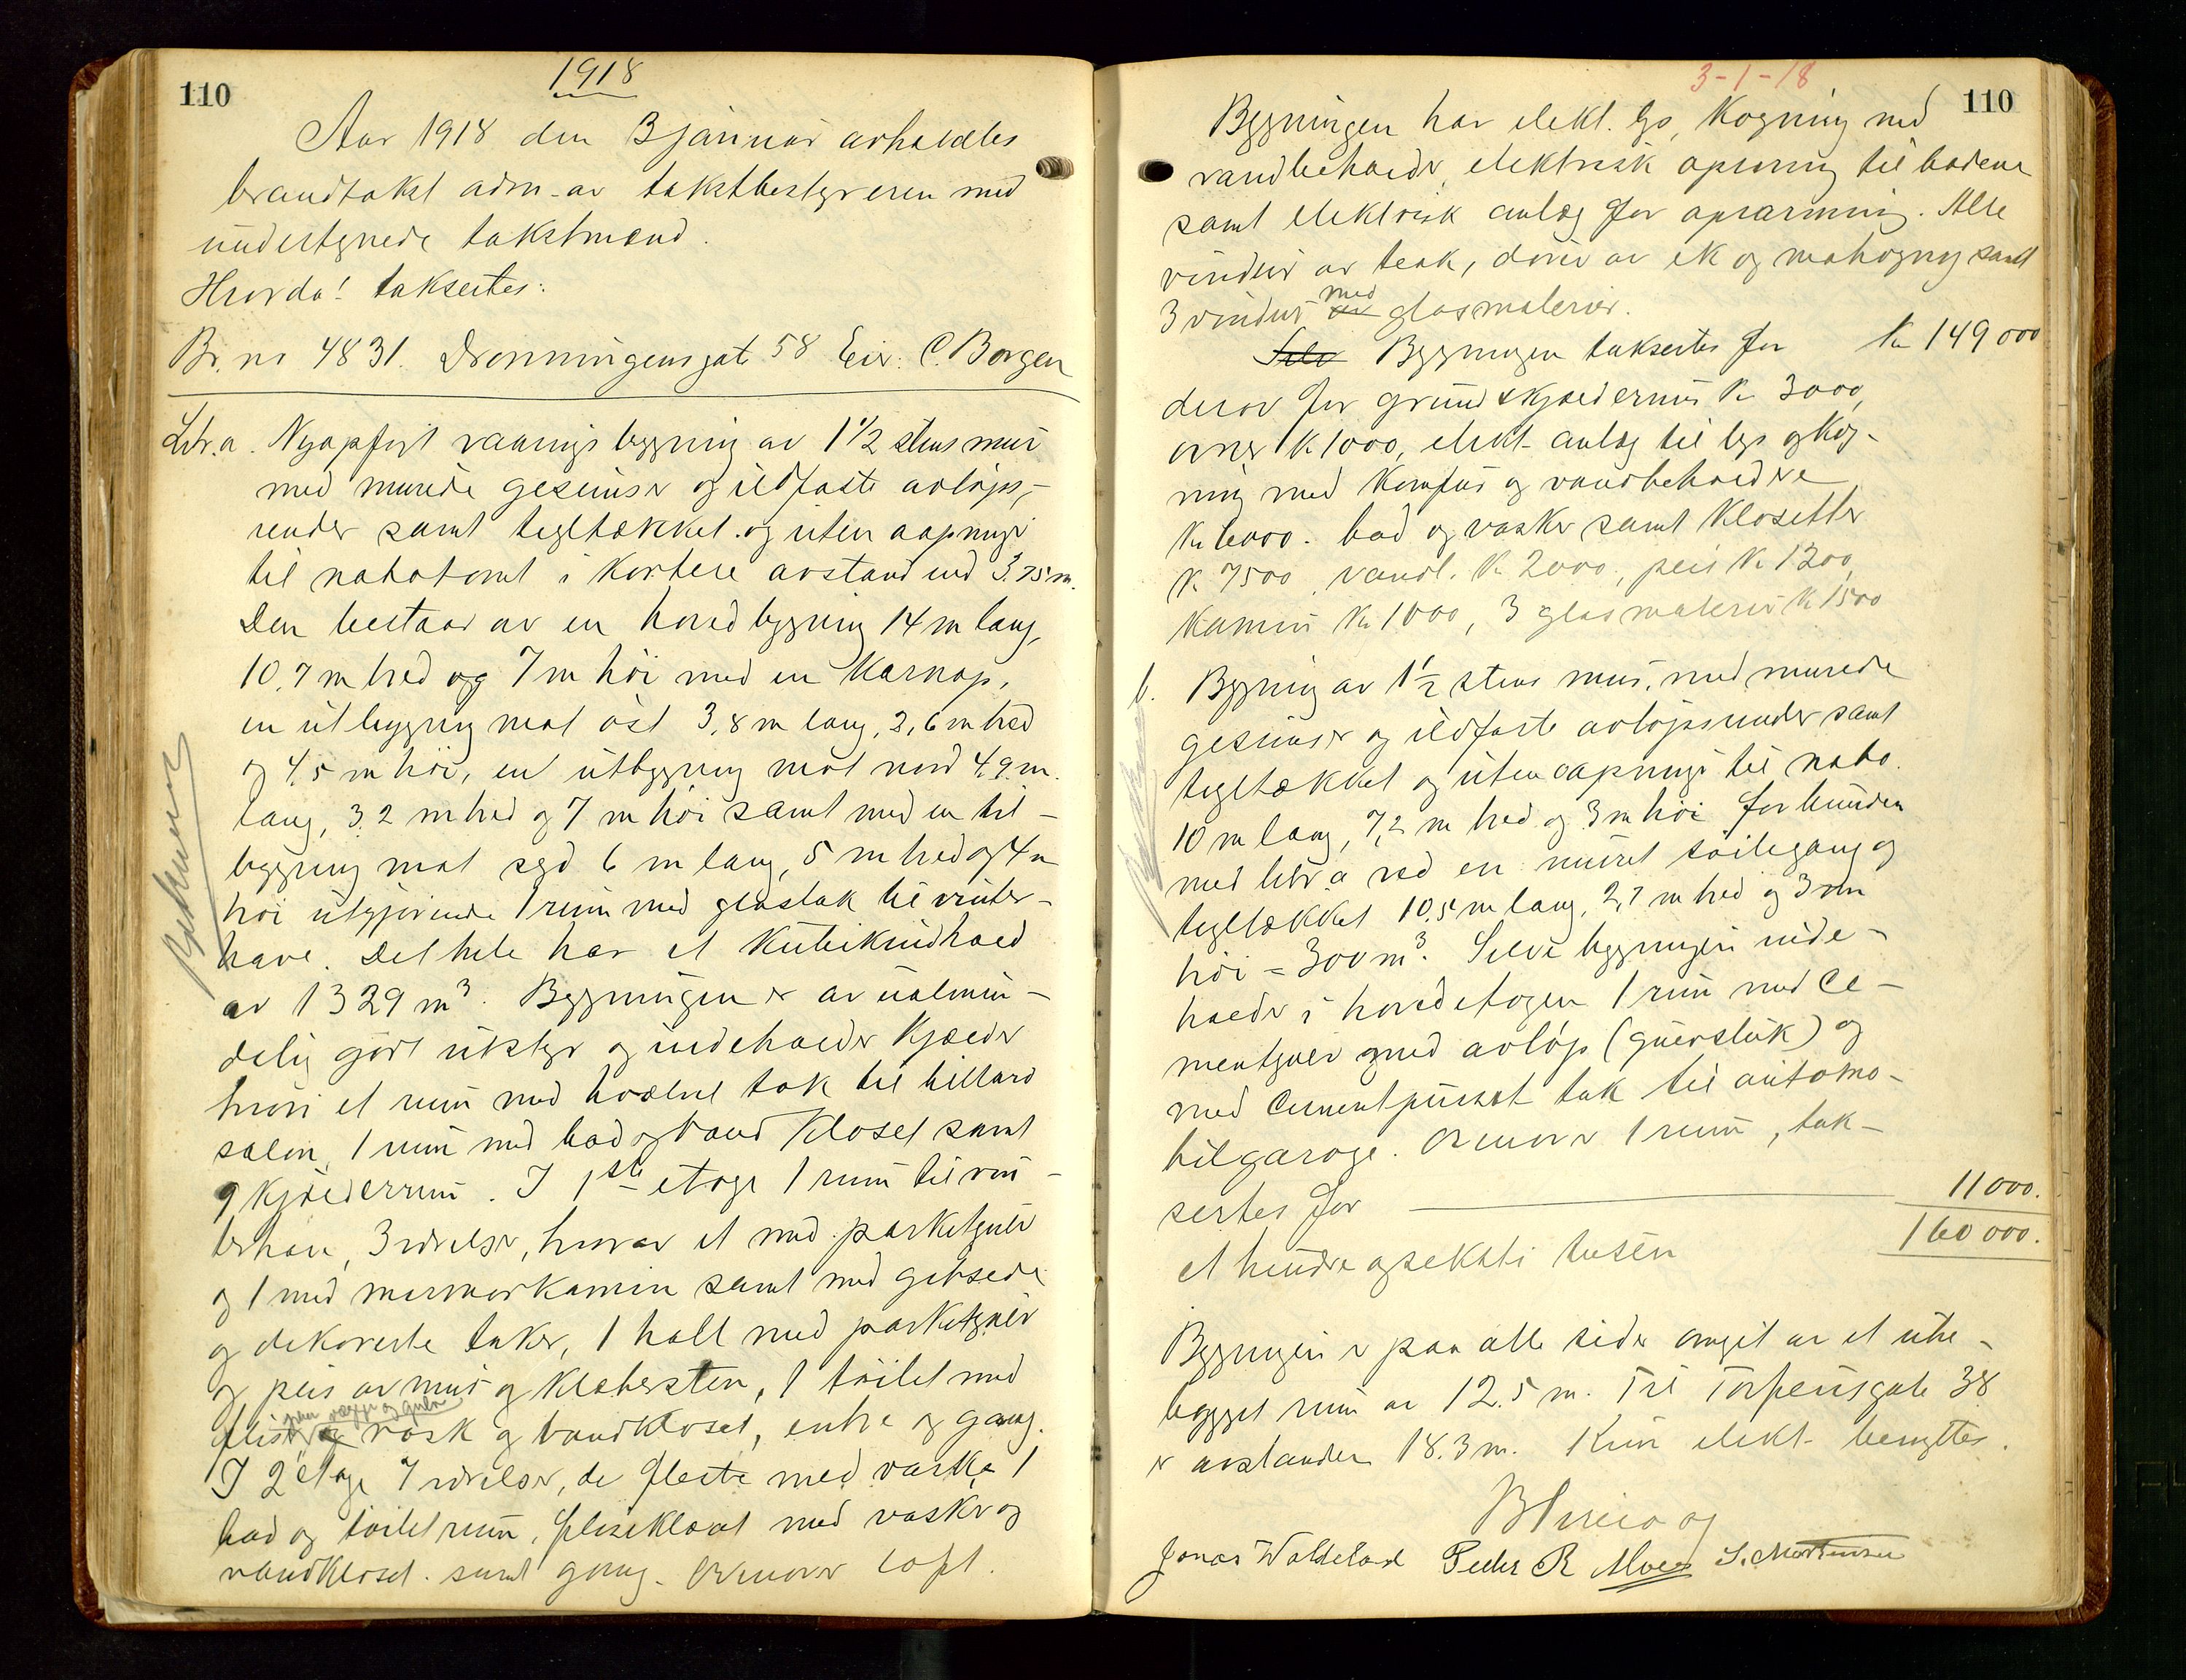 110
1918
Aar 1918 den 3 januar avholdtes
brandtakst adm. av takstbestyreren med
undertegnede takstmænd.
Hvorda! taksertes:
Br. nr 4831. Dronningensgate 58 Eier: C. Borgen
Litr. a. Nyopført vaanings bygning av 1 1/2 stens mur
med murede gesimser og ildfaste avløps-
render samt tegltækket og uten aapninger
til nabotomt i kortere avstand end 3.75 m.
Den bestaar av en hovedbygning 14 m lang,
10,7 m bred og 7 m höi med en karnap,
en utbygning mot öst 3,8 m lang, 2,6 m bred
og 4,5 m höi, en utbygning mot nord 4,9 m.
lang, 3.2 m bred og 7 m höi samt med en til-
bygning mot syd 6 m lang, 5 m bred og 4 m
höi utgjörende 1 rum med glastak til vinter-
have. Det hele har et kubikindhold
av 1329 m³. Bygningen er av ualmin-
delig godt utstyr og indeholder kjælder
hvori et rum med hvælvet tak til billard
salon, 1 rum med bad og vand kloset samt
9 kjælderrum. I 1ste etage 1 rum til vin-
terhave, 3 værelser, hvorav et med parketgulv
og 1 med marmorkamin samt med gibsede
og dekorerte taker, 1 hall med parketgulv
og peis av mur og klebersten, 1 toilet med
paa vægge og gulv
fliser og vask og vandkloset, entre og gang.
I 2 etage 7 værelser, de fleste med vaske, 1
bad og toiletrum, flisekledt med vasker og
vandkloset. samt gang. Ovenover loft.
3-1-18
110
Bygningen har elekt. lys, kogning med
vandbeholder, elektrisk opvarming til badene
samt elektrisk anlæg for opvarming. Alle
vinduer av teak, dörer av ek og mahogny samt
med
3 vinduer av glasmalerier.
Selv Bygningen taksertes for Kr 149 000
derav for grund & kjælderrum Kr 3000,
ovner Kr 1000, elekt. anlæg til lys og kog-
ning med komfur og vandbeholdere
Kr 6000. bad og vasker samt klosetter
Kr. 7500, vandl. Kr 2000, peis Kr 1200,
kamin Kr 1000, 3 glasmalerier Kr 1500
b. Bygning av 1 1/2 stens mur, med murede
gesimser og ildfaste avløpsrender samt
tegltækket og uten aapninger til nabo.
10 m lang, 7,2 m bred og 3 m höi forbunden
med litr. a ved en muret söilegang og
tegltækket 10,5 m lang, 2,7 m bred og 3 m
höi = 300 m³. Selve bygningen inde-
holder i hovedetagen 1 rum med ce-
mentgulv med avløp (gulvsluk) og
med cementpusset tak til automo-
bilgarage. Ovenover 1 rum, tak-
sertes for 11000.
160 000.
et hundre og seksti tusen
Bygningen er paa alle sider omgit av et ube-
bygget rum av 12.5 m. Til Torfeusgate 38
er avstanden 18.3 m. Kun elekt. benyttes.
Jonas Waldeland Peder R Moen S. Mortensen